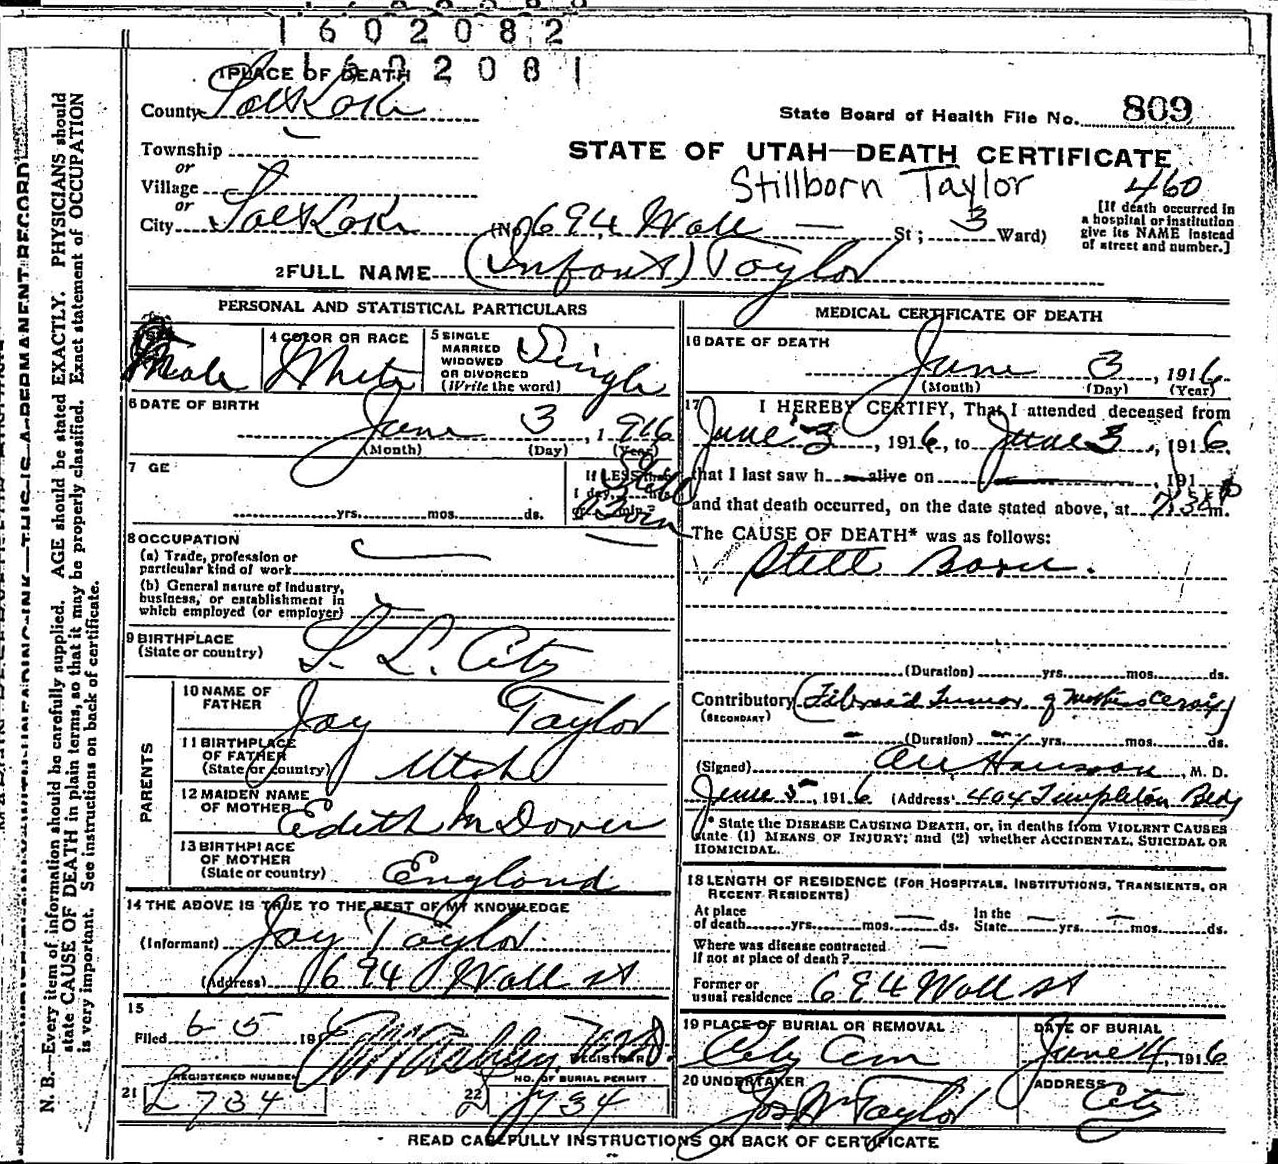 1602082
1602081
1 PLACE OF DEATH
County Salt Lake
State Board of Health File No. 809
Township
or
Village
or
City Salt Lake
STATE OF UTAH—DEATH CERTIFICATE
Stillborn Taylor 460
(No. 694 Wall St; 3 Ward)
[If death occurred in
a hospital or institution
give its NAME instead
of street and number.]
2 FULL NAME (Infant) Taylor
PERSONAL AND STATISTICAL PARTICULARS
Male
4 COLOR OR RACE
White
5 SINGLE
MARRIED
WIDOWED
OR DIVORCED
(Write the word)
Single
6 DATE OF BIRTH
June 3, 1916
(Month) (Day) (Year)
7 GE
yrs. mos. ds.
If LESS than
1 day,
Still
Born
8 OCCUPATION
(a) Trade, profession or
particular kind of work
(b) General nature of industry,
business, or establishment in
which employed (or employer)
9 BIRTHPLACE
(State or country)
S. L. City
PARENTS
10 NAME OF
FATHER
Jay Taylor
11 BIRTHPLACE
OF FATHER
(State or country)
Utah
12 MAIDEN NAME
OF MOTHER
Edith M Dover
13 BIRTHPLACE
OF MOTHER
(State or country)
England
14 THE ABOVE IS TRUE TO THE BEST OF MY KNOWLEDGE
(Informant) Jay Taylor
(Address) 694 Wall st
15
Filed 6 5 191
REGISTRAR
REGISTERED NUMBER
21 L 734
NO. OF BURIAL PERMIT
22 J734
MEDICAL CERTIFICATE OF DEATH
16 DATE OF DEATH
June 3, 1916
(Month) (Day) (Year)
17 I HEREBY CERTIFY, That I attended deceased from
June 3, 1916, to June 3, 1916,
that I last saw h — alive on —, 191
and that death occurred, on the date stated above, at 7:38 p m.
The CAUSE OF DEATH* was as follows:
Still Born.
(Duration) yrs. mos. ds.
Contributory (Fibroid Tumor of Mothers Cervix)
(SECONDARY)
(Duration) yrs. mos. ds.
(Signed) M. D.
June 5, 1916 (Address) 404 Templeton Bldg
* State the DISEASE CAUSING DEATH, or, in deaths from VIOLENT CAUSES
state (1) MEANS OF INJURY; and (2) whether ACCIDENTAL, SUICIDAL OR
HOMICIDAL.
18 LENGTH OF RESIDENCE (FOR HOSPITALS, INSTITUTIONS, TRANSIENTS, OR
RECENT RESIDENTS)
At place
of death yrs. mos. ds.
In the
State yrs. mos. ds.
Where was disease contracted
If not at place of death?
Former or
usual residence 694 Wall st
19 PLACE OF BURIAL OR REMOVAL
City Cem
DATE OF BURIAL
June 4, 1916
20 UNDERTAKER
Jos Wm Taylor
ADDRESS
City
READ CAREFULLY INSTRUCTIONS ON BACK OF CERTIFICATE
THIS IS A PERMANENT RECORD
N. B.—Every item of information should be carefully supplied. AGE should be stated EXACTLY. PHYSICIANS should
state CAUSE OF DEATH in plain terms, so that it may be properly classified. Exact statement of OCCUPATION
is very important. See instructions on back of certificate.